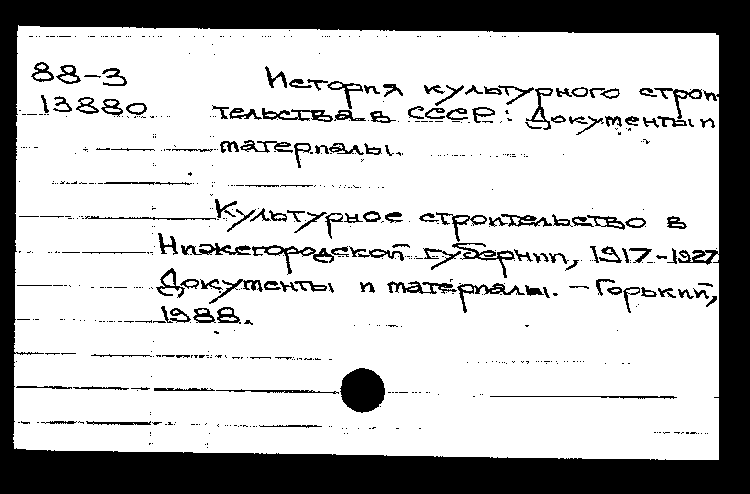 88-3
13880
История культурного строи-
тельства в СССР: Документы и
материалы.
Культурное строительство в
Нижегородской губернии, 1917-1927
Документы и материалы. - Горький,
1988.